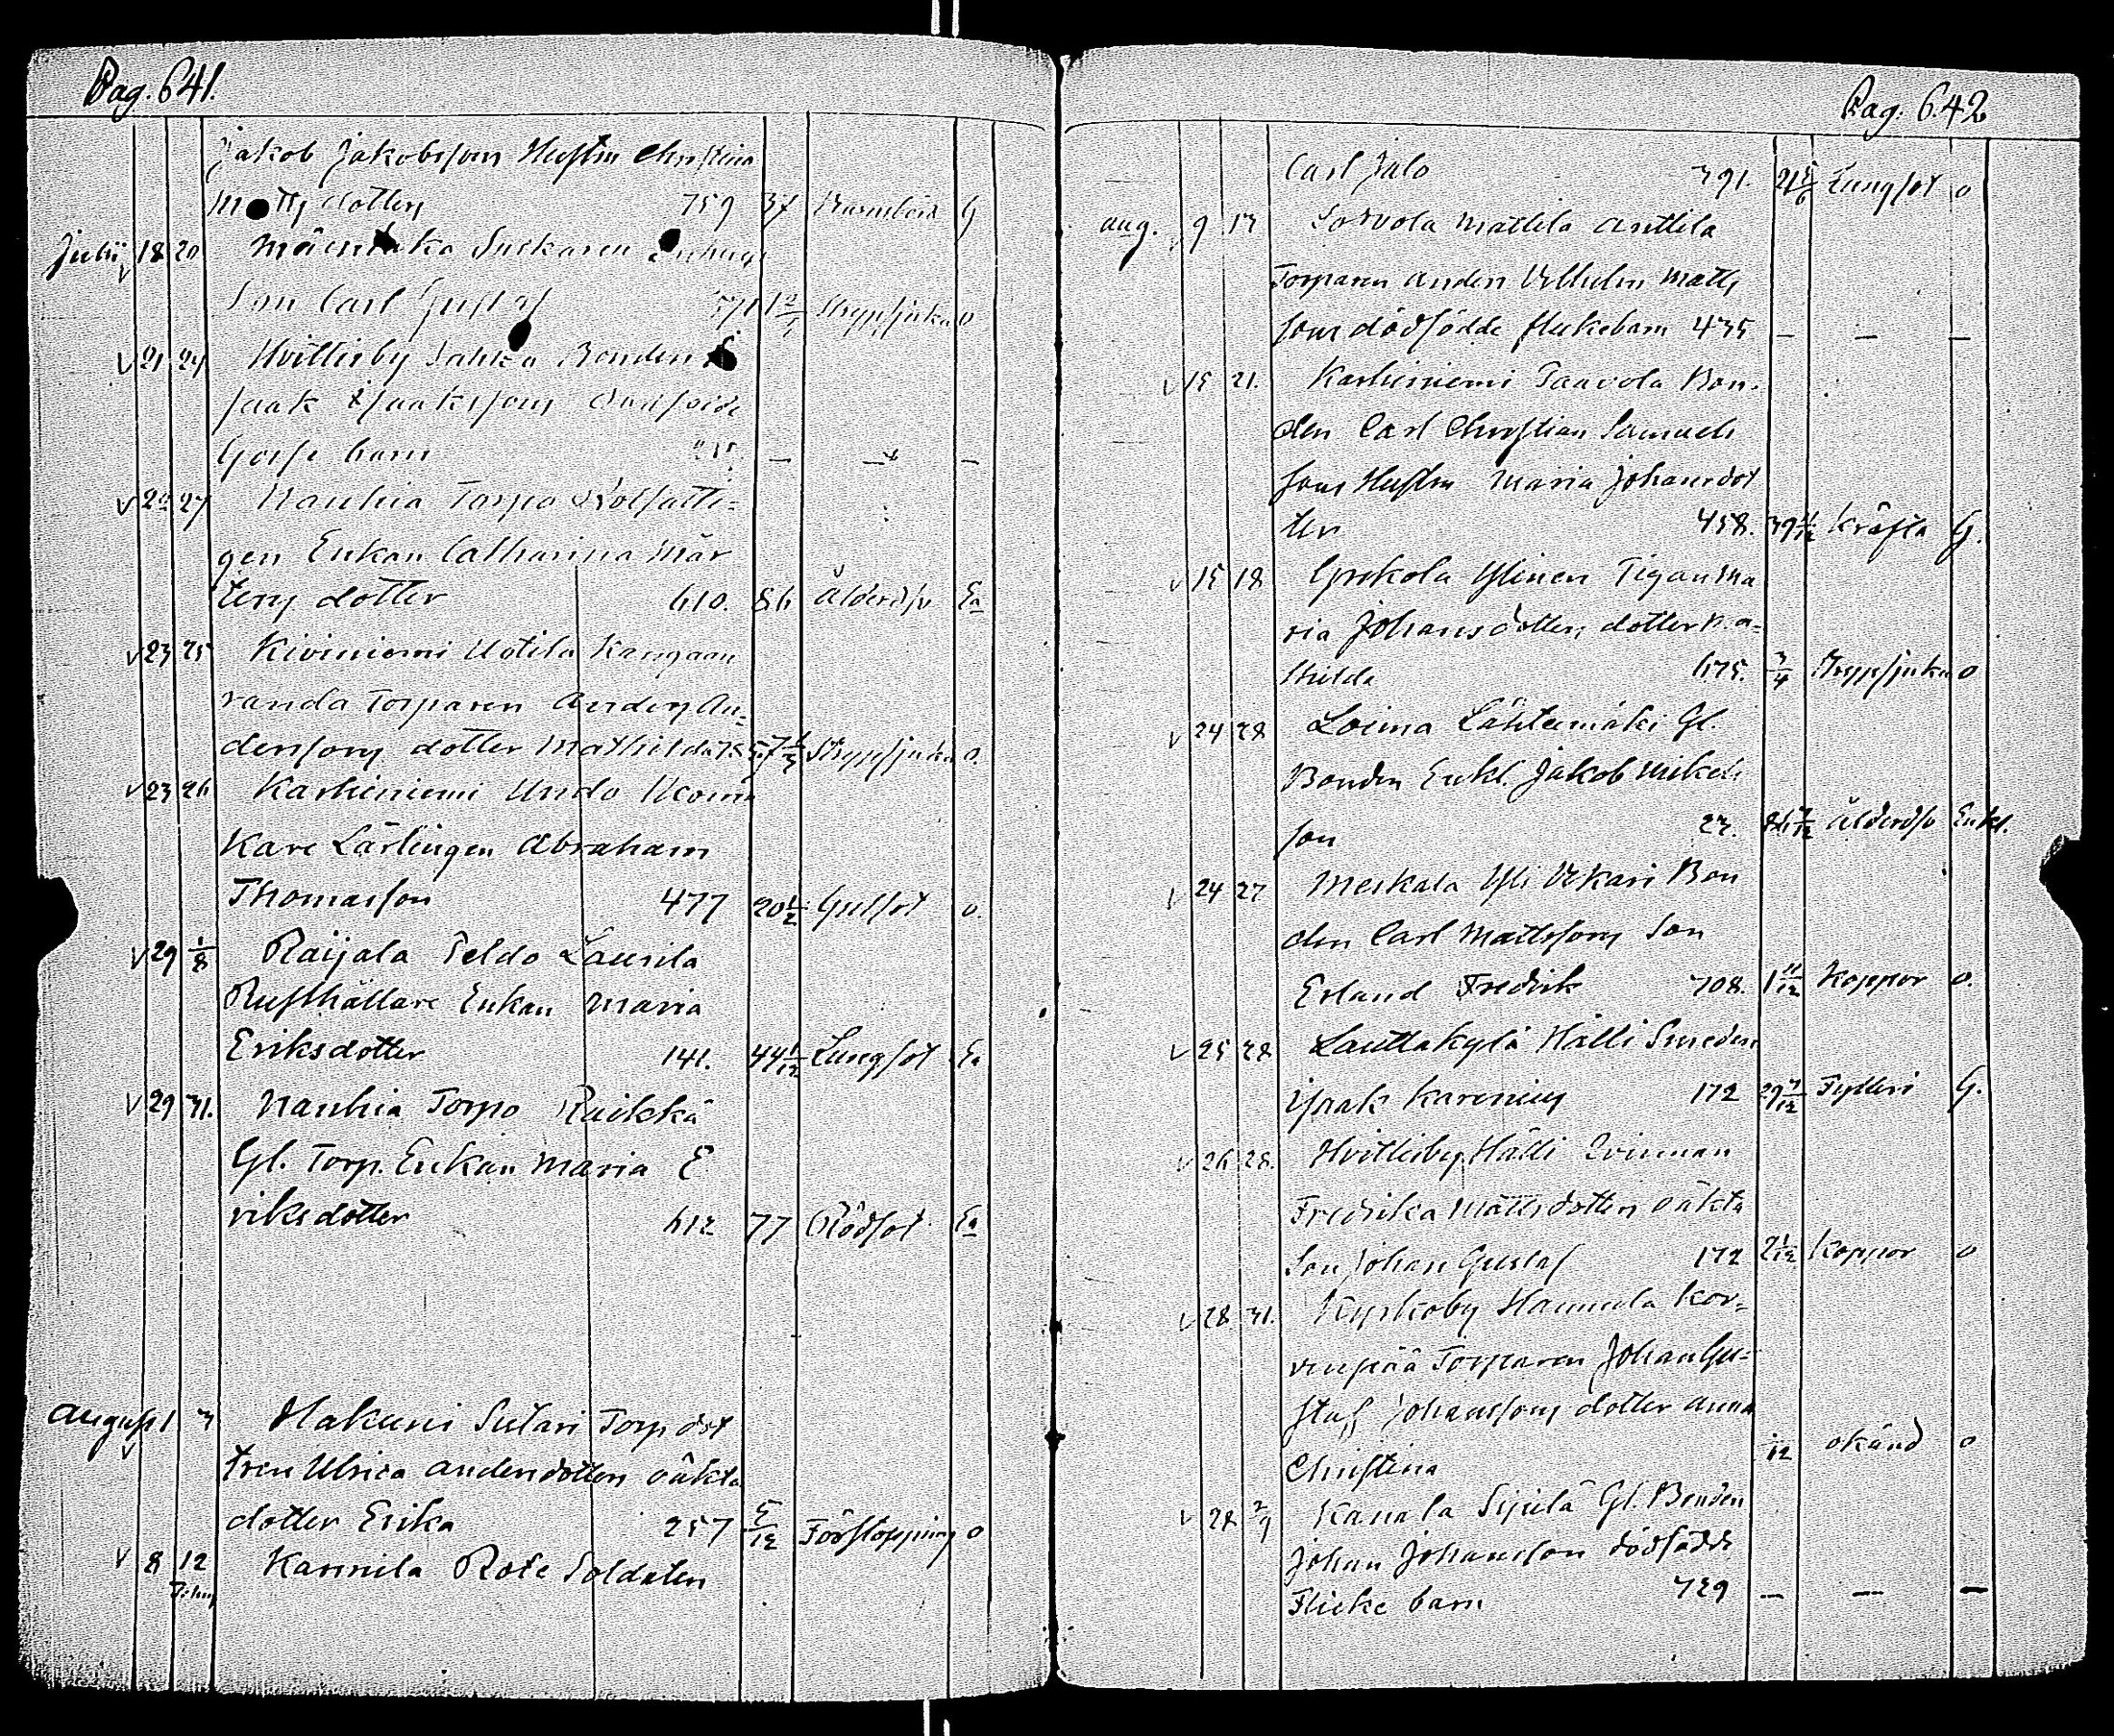 Pag. 641.
Jakob Jakobssons Hustru Christina
Matts dotter 759 37 Barnbörd G
Julii 18 20 Mäenpää Suskaren
Son Carl Gustaf Strypsjuka o
21 24 Hvittisby Sahka Bonden I
saak Isaakssons dödfödde
Gosse barn — — —
27 Nauhia Torpo Rotfatti-
gen Enkan Catharina Mår
tens dotter 610. 86 ålderdº Ea
23 25 Kiviniemi Uotila Kangaan
randa Torparen Anders An-
derssons dotter Mathilda Strypsjuka o.
23 26 Karhiniemi Undo Skoma
kare Lärlingen Abraham
Thomasson 477 20½ Gulsot o.
29 1/8 Raijala Seldo Laurila
Rusthållare Enkan Maria
Eriksdotter 141. 44 1/12 Lungsot Ea
29 31. Nauhia Torpo Ruikkä
Gl. Torp. Enkan Maria E
riksdotter 612 77 Rödsot Ea
August 1 3 Hakuni Sutari Torp dot
tren Ulrica Andersdotters oäkta
dotter Erika 257 5/12 Förstoppning o
8 12 Kannila Rote Soldaten
Pag. 642
Carl Jalo 391. Lungsot o
aug. 9 13 Sorvola Mattila Anttila
Torparen Anders Vilhelm Matts
sons dödfödde flickebarn 435 — — —
15 21. Karhiniemi Paavola Bon-
den Carl Christian Samuels
sons Hustru Maria Johansdot
ter 458. 39 11/12 Kräfta G.
15 18 Yrskola Ylinen Pigan Ma
ria Johansdotters dotter Ma-
thilda 675. 3/4 Strypsjuka o
24 28 Loima Lähteenmäki Gl.
Bonden Enkl. Jakob Mikels
son 23. 86 7/12 ålderdº Enkl.
24 27 Meskala Yli Vekari Bon
den Carl Mattssons Son
Erland Fredrik 708. 1 11/12 Koppor o.
25 28 Lauttakylä Hälli Smeden
Isaak Karenius 172 29 7/12 Fylleri G.
26 28. Hvittisby Hälli Qvinnan
Fredrika Mattsdotters oäkta
Son Johan Gustaf 172 2 1/12 Koppor o
28 31. Kyrkoby Hannula Kor-
venpää Torparen Johan Gu-
staf Johanssons dotter Anna
Christina 1/12 okänd o
28 2/9 Kanala Sipilä Gl. Bonden
Johan Johansson dödfödde
Flicke barn 729 — — —